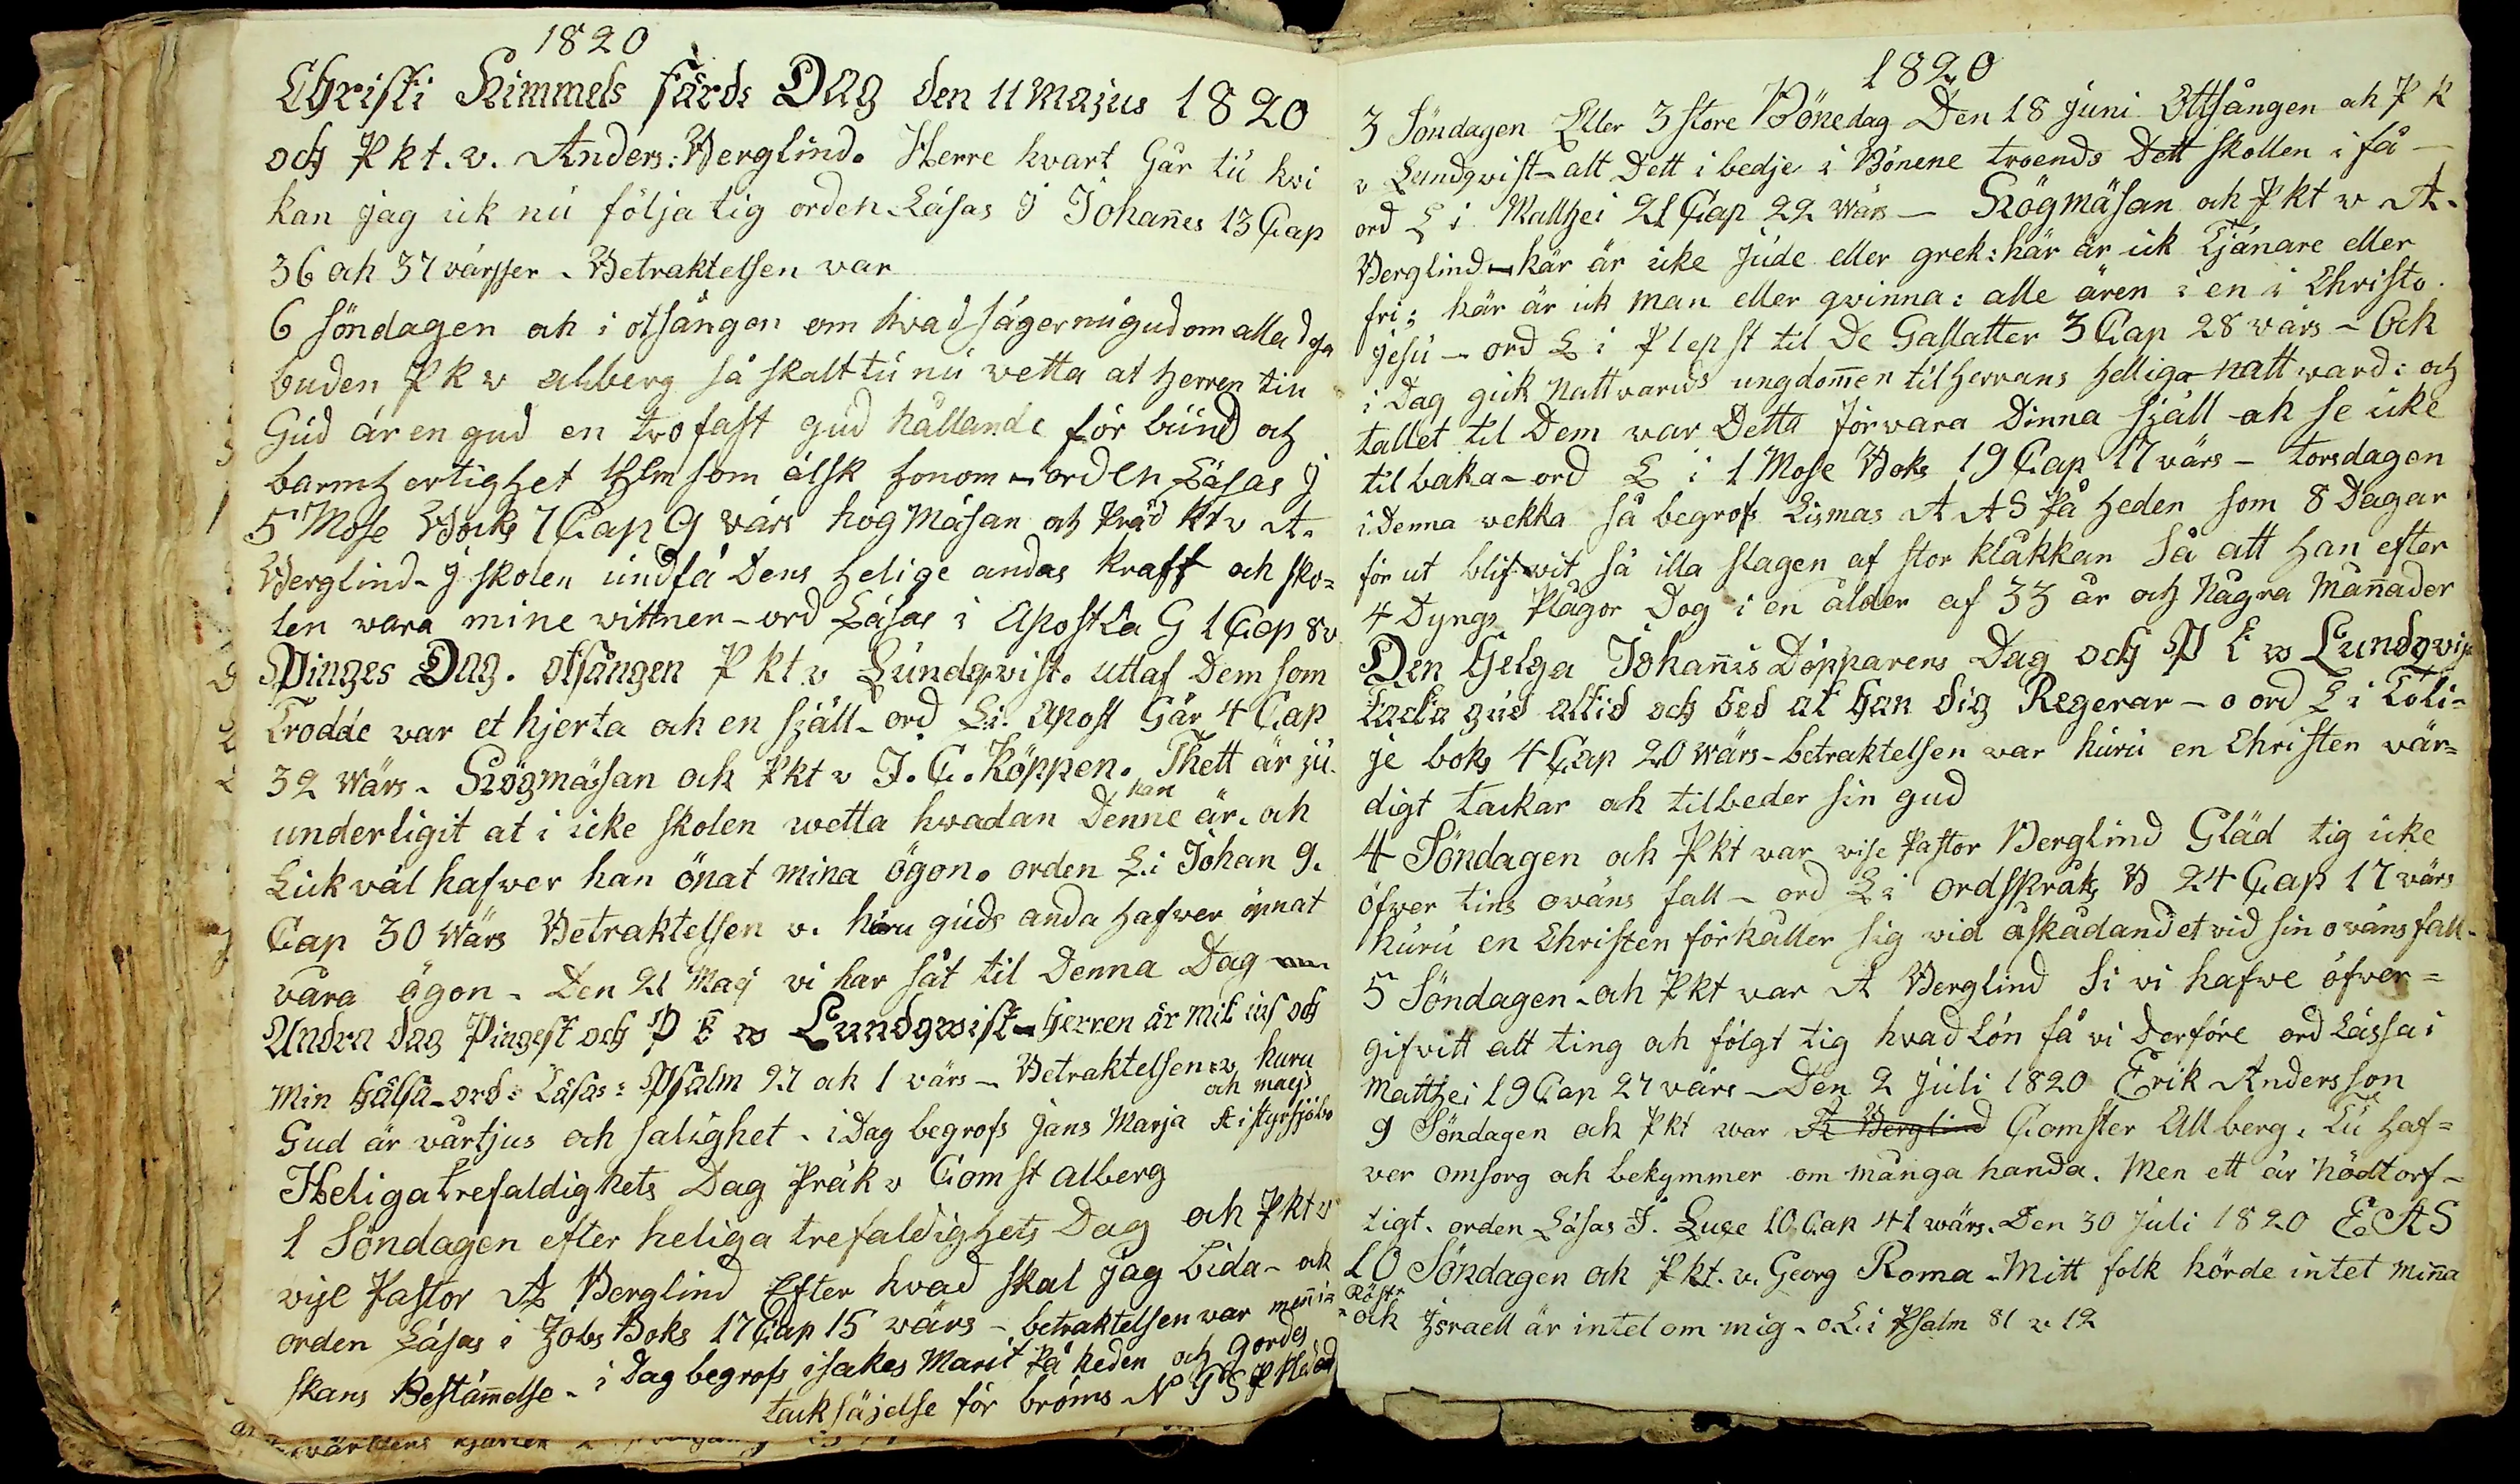 1820
Christi Himmels färds Dag den 11 Majus 1820
och Pkt. v. Anders: Berglind. Herre hvart Går tu hvi
kan jag ick nu följa tig orden Läsas J Johañes 13 Cap
36 och 37 värsser - Betraktelsen var
6 söndagen ock i otsången om hvad säger nu gud om alla
buden P K v alberg så skalt tu nu vetta at Herren tin
Gud är en gud en trofast gud hållande för bund och
barmhertighet som älsk honom - orden Läsas J
5 Mose Bocks 7 Cap 9 värs hög Mäsan och Präd kt v A.
Berglind - J skolen undfå Dens helige andas kraft och sko=
len vara mine vittnen - ord Läsas i Apostla G 1 Cap 8 v
Pinges Dag. otsången P kt v Lundqvist. uttaf Dem som
Trodde var et hjerta och en själl - ord L i Apost Gär 4 Cap
32 Wärs - Högmäsan och Pkt v J. C. Köppen. Thett är ju
han
underligit at i icke skolen wetta hvadan Denne är. och
Lickväl hafver han önat mina ögon. orden L i Johan 9.
Cap 30 Wärs Betraktelsen v. huru guds anda hafver öpnat
våra ögon - Den 21 Maj vi har såt til Denna Dag
Andra dag Pingest och P k v Lundqwist - Herren är mit ius och
min hälsa - ord: Läsas: Psalm 27 och 1 värs - Betraktelsen v huru
och maejs
Gud är vårtjus och salighet - i Dag begrofs jans Marja
Heliga trefaldighets Dag Präk v Comst alberg
1 Söndagen efter heliga trefaldighets Dag och Pkt v
vise Pastor A Berglind Efter hvad skal jag bida - ock
orden Läsas i Jobs Boks 17 Cap 15 värs - betraktelsen var meñis
skans Bestämelse - i Dag begrofs isakes Marit På heden och gordes
tacksäjelse för bröms N
1820
3 Söndagen Eller 3 store Bönedag Den 18 juni Ottsången ock P K
v Lundqvist - alt Dett i bedje i Bönene troends Dett skollen i få -
ord L i Matthei 21 Cap 22 Wärs - Högmäsan och Pkt v A.
Berglind - här är icke Jude eller grek: här är ick Tjänare eller
fri; här är ick man eller qwinna: alle ären i en i Christo.
Jesu - ord L i P lepst til De Gallatter 3 Cap 28 värs - Och
i Dag gick Nattvards ungdomen til Herrans helliga nattward: och
tallet til Dem var Detta förvara Dinna själl ock se icke
tilbaka - ord L i 1 Mose Boks 19 Cap 17 värs - torsdagen
i Denna vekka så begrofs Lismas A A S På heden som 8 Dagar
för ut blifwit så illa slagen af stor klåkkan Så att han efter
4 Dyngs Plågor Dog i en ålder af 33 år och Några Mañader
Den Helga Johañis Döpparens Dag och P k v Lundqvis
tacka gud altid och bed at han dig Regerar - o ord L i Tobi=
je boks 4 Cap 20 Wärs - betraktelsen var huru en Christen vär=
digt tackar och tilbeder sin gud
4 Söndagen och Pkt var vise Pastor Berglind Gläd tig icke
öfver tins oväns fall - ord L i ordspråks B 24 Cap 17 värs
huru en Christen förhåller sig vid åskådandet vid sin oväns fall -
5 Söndagen - och Pkt war A Berglind Si vi hafwe öfver=
gifvitt alt ting och fölgt tig hvad Lön få vi Derföre ord Lässa i
Matthei 19 Cap 27 värs - Den 2 Juli 1820 Erik Andersson
9 Söndagen och Pkt war A Berglind Comster Allberg. Tu haf=
ver omsorg och bekymmer om många handa. Men ett är Nödtorf=
tigt. orden Läsas J. Luce 10 Cap 41 wärs. Den 30 Juli 1820 E A S
10 Söndagen och Pkt. v. Georg Roma - Mitt folk hörde intet miña
Röst
ock Jsraell är intet om mig - o L i Psalm 81 v 12